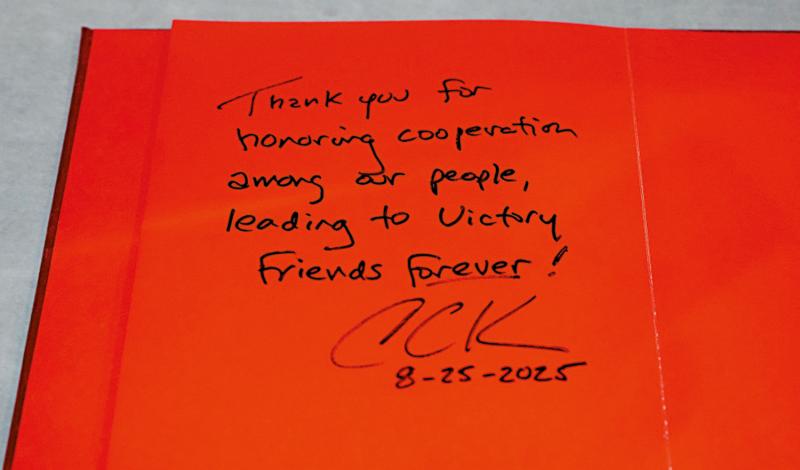 Thank you for
honoring cooperation
among our people,
leading to Victory
Friends forever!
CCK
8-25-2025